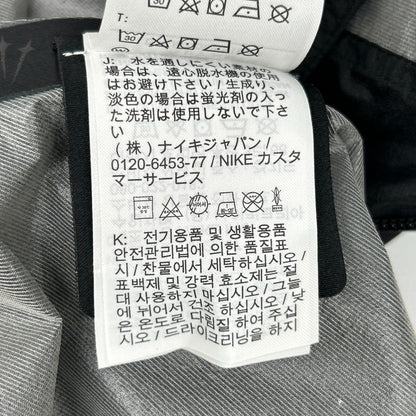 T:
J: 水を通しにくい素材の
場合は、遠心脱水機の使用
はお避け下さい / 生成り、
淡色の場合は蛍光剤の入っ
た洗剤は使用しないで下さ
い
(株) ナイキジャパン /
0120-6453-77 / NIKE カスタ
マーサービス
K: 전기용품 및 생활용품
안전관리법에 의한 품질표
시 / 찬물에서 세탁하십시오 /
표백제 및 강력 효소제는 절
대 사용하지 마십시오 / 그늘
에 뉘어서 건조 하십시오 / 낮
은 온도로 다림질 하여 주십
시오 / 드라이크리닝을 하지